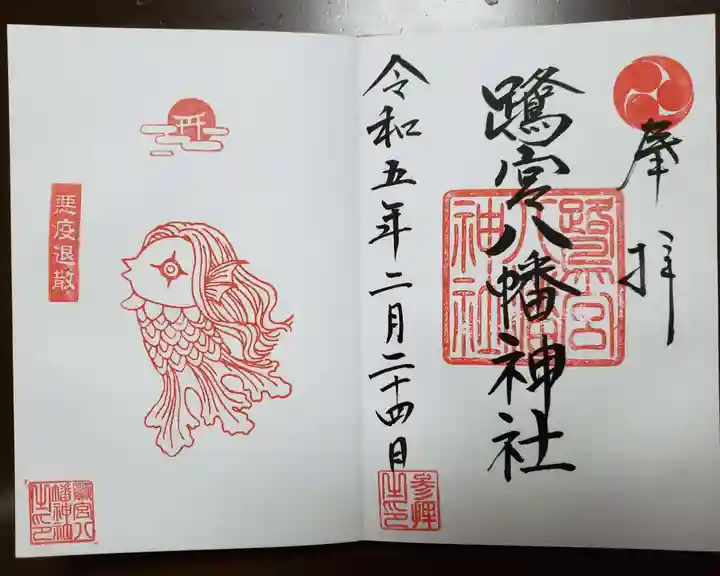 奉拝
鷺宮八幡神社
鷺宮八幡神社
令和五年二月二十四日
参拝
之印
悪疫退散
鷺宮八
幡神社
之印